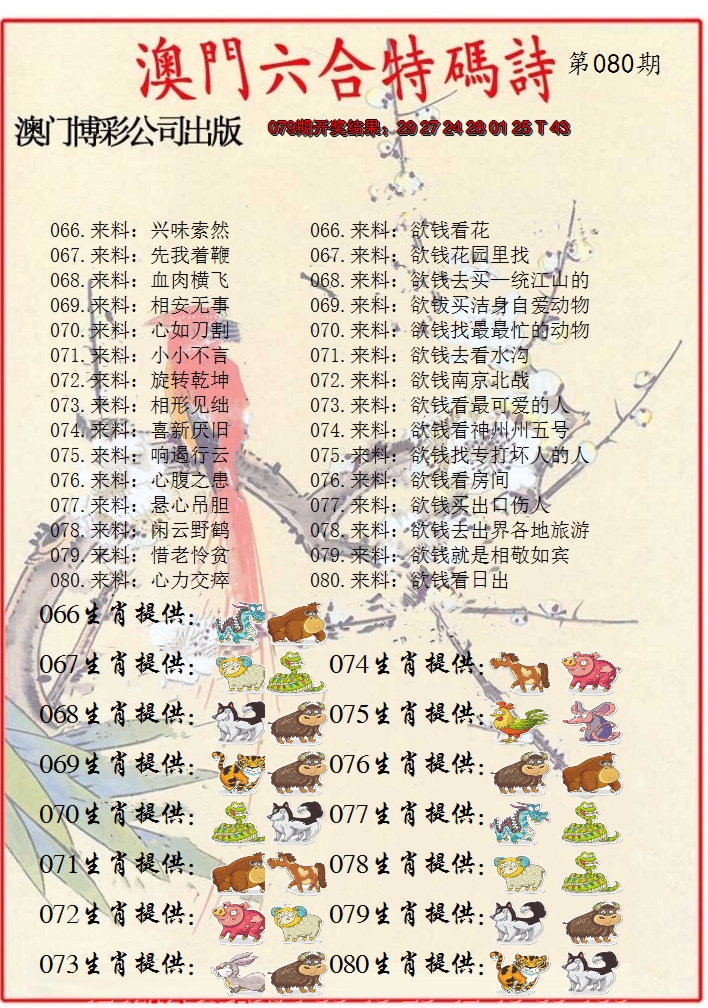 澳門六合特碼詩 第080期
澳门博彩公司出版 079期开奖结果：29 27 24 28 01 25 T 43
066.来料：兴味索然 066.来料：欲钱看花
067.来料：先我着鞭 067.来料：欲钱花园里找
068.来料：血肉横飞 068.来料：欲钱去买一统江山的
069.来料：相安无事 069.来料：欲钹买洁身自爱动物
070.来料：心如刀割 070.来料：欲钱找最最忙的动物
071.来料：小小不言 071.来料：欲钱去看水沟
072.来料：旋转乾坤 072.来料：欲钱南京北战
073.来料：相形见绌 073.来料：欲钱看最可爱的人
074.来料：喜新厌旧 074.来料：欲钱看神州州五号
075.来料：响遏行云 075.来料：欲钱找专打坏人的人
076.来料：心腹之患 076.来料：欲钱看房间
077.来料：悬心吊胆 077.来料：欲钱买出口伤人
078.来料：闲云野鹤 078.来料：欲钱去出界各地旅游
079.来料：惜老怜贫 079.来料：欲钱就是相敬如宾
080.来料：心力交瘁 080.来料：欲钱看日出
066生肖提供：
067生肖提供： 074生肖提供：
068生肖提供： 075生肖提供：
069生肖提供： 076生肖提供：
070生肖提供： 077生肖提供：
071生肖提供： 078生肖提供：
072生肖提供： 079生肖提供：
073生肖提供： 080生肖提供：